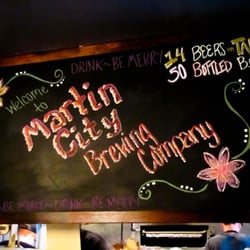 DRINK~BE MERRY
14 BEERS on TA
50 Bottled B
Welcome to
Martin
City
Brewing
Company
BE MERRY~DRINK~BE MERRY